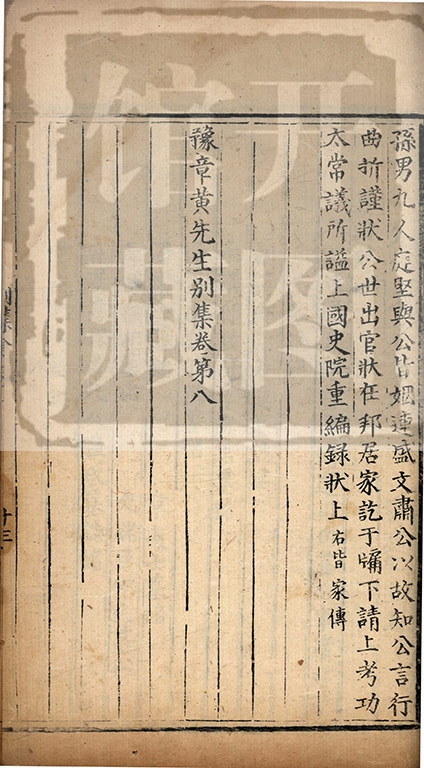 孫男九人庭堅與公皆姻連盛文肅公以故知公言行
曲折謹狀公世出官狀在邦居家訖于牖下請上考功
太常議所謚上國史院重編録狀上右皆家傳
豫章黄先生别集卷第八
别集八
十三